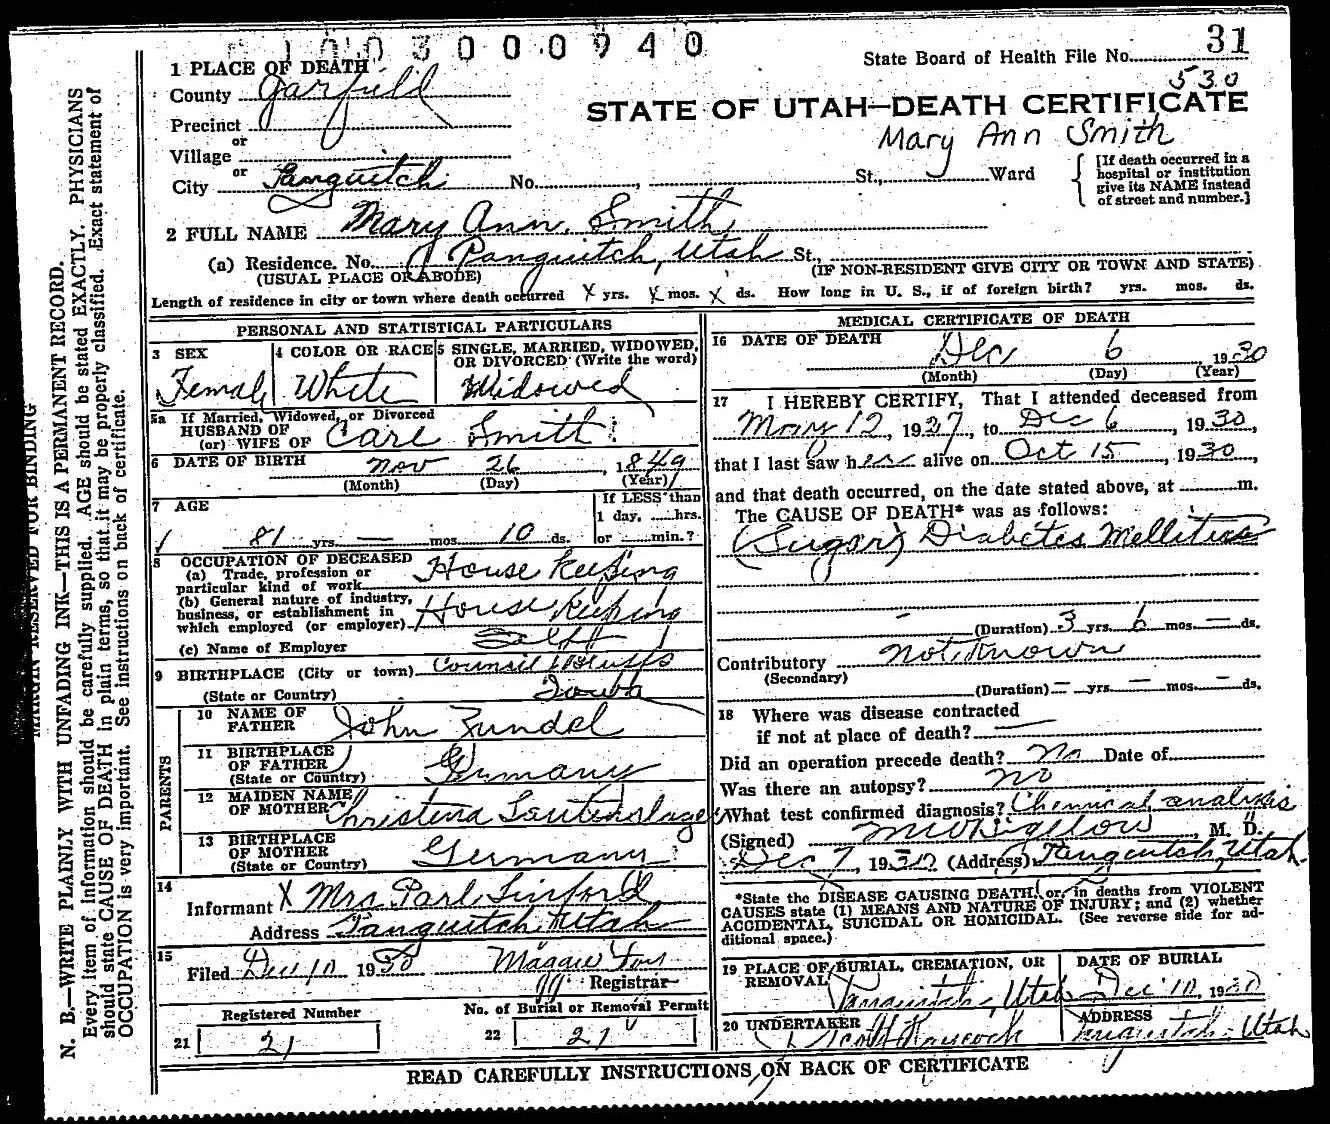 1003000940
State Board of Health File No. 31
530
1 PLACE OF DEATH
County Garfield
STATE OF UTAH—DEATH CERTIFICATE
Precinct
Mary Ann Smith
or
Village
or
City Panguitch No. , St., Ward
{ [If death occurred in a hospital or institution give its NAME instead of street and number.]
2 FULL NAME Mary Ann Smith
(a) Residence. No. Panguitch, Utah St.,
(USUAL PLACE OR ABODE) (IF NON-RESIDENT GIVE CITY OR TOWN AND STATE)
Length of residence in city or town where death occurred X yrs. X mos. X ds. How long in U. S., if of foreign birth? yrs. mos. ds.
PERSONAL AND STATISTICAL PARTICULARS
3 SEX
Female
4 COLOR OR RACE
White
5 SINGLE, MARRIED, WIDOWED,
OR DIVORCED (Write the word)
Widowed
5a If Married, Widowed, or Divorced
HUSBAND OF
(or) WIFE OF Carl Smith
6 DATE OF BIRTH Nov 26, 1849
(Month) (Day) (Year)
7 AGE
81 yrs. — mos. 10 ds.
If LESS than
1 day, hrs.
or min.?
8 OCCUPATION OF DECEASED
(a) Trade, profession or
particular kind of work House Keeping
(b) General nature of industry,
business, or establishment in
which employed (or employer) House Keeping
(c) Name of Employer Self
9 BIRTHPLACE (City or town) Council Bluffs
(State or Country) Iowa
PARENTS
10 NAME OF
FATHER John Zundel
11 BIRTHPLACE
OF FATHER
(State or Country) Germany
12 MAIDEN NAME
OF MOTHER Christena Lautenslager
13 BIRTHPLACE
OF MOTHER
(State or Country) Germany
14
Informant X Mrs Parl
Address Panguitch, Utah
15
Filed Dec 10 1930 Maggie
Registrar
Registered Number
21 21
No. of Burial or Removal Permit
22 21
MEDICAL CERTIFICATE OF DEATH
16 DATE OF DEATH
Dec 6 1930
(Month) (Day) (Year)
17 I HEREBY CERTIFY, That I attended deceased from
May 12, 1927, to Dec 6, 1930,
that I last saw her alive on Oct 15, 1930,
and that death occurred, on the date stated above, at m.
The CAUSE OF DEATH* was as follows:
(Sugar) Diabetes Mellitus
(Duration) 3 yrs. 6 mos. — ds.
Contributory Not Known
(Secondary)
(Duration) — yrs. — mos. — ds.
18 Where was disease contracted
if not at place of death? —
Did an operation precede death? No Date of
Was there an autopsy? no
What test confirmed diagnosis? Chemical analysis
(Signed) M W Bigelow, M. D.
Dec 7, 1930 (Address) Panguitch, Utah
*State the DISEASE CAUSING DEATH, or, in deaths from VIOLENT
CAUSES state (1) MEANS AND NATURE OF INJURY; and (2) whether
ACCIDENTAL, SUICIDAL OR HOMICIDAL. (See reverse side for ad-
ditional space.)
19 PLACE OF BURIAL, CREMATION, OR
REMOVAL
Panguitch, Utah
DATE OF BURIAL
Dec 10, 1930
20 UNDERTAKER
ADDRESS
Panguitch, Utah
READ CAREFULLY INSTRUCTIONS ON BACK OF CERTIFICATE
MARGIN RESERVED FOR BINDING
N. B.—WRITE PLAINLY WITH UNFADING INK—THIS IS A PERMANENT RECORD.
Every item of information should be carefully supplied. AGE should be stated EXACTLY. PHYSICIANS
should state CAUSE OF DEATH in plain terms, so that it may be properly classified. Exact statement of
OCCUPATION is very important. See instructions on back of certificate.